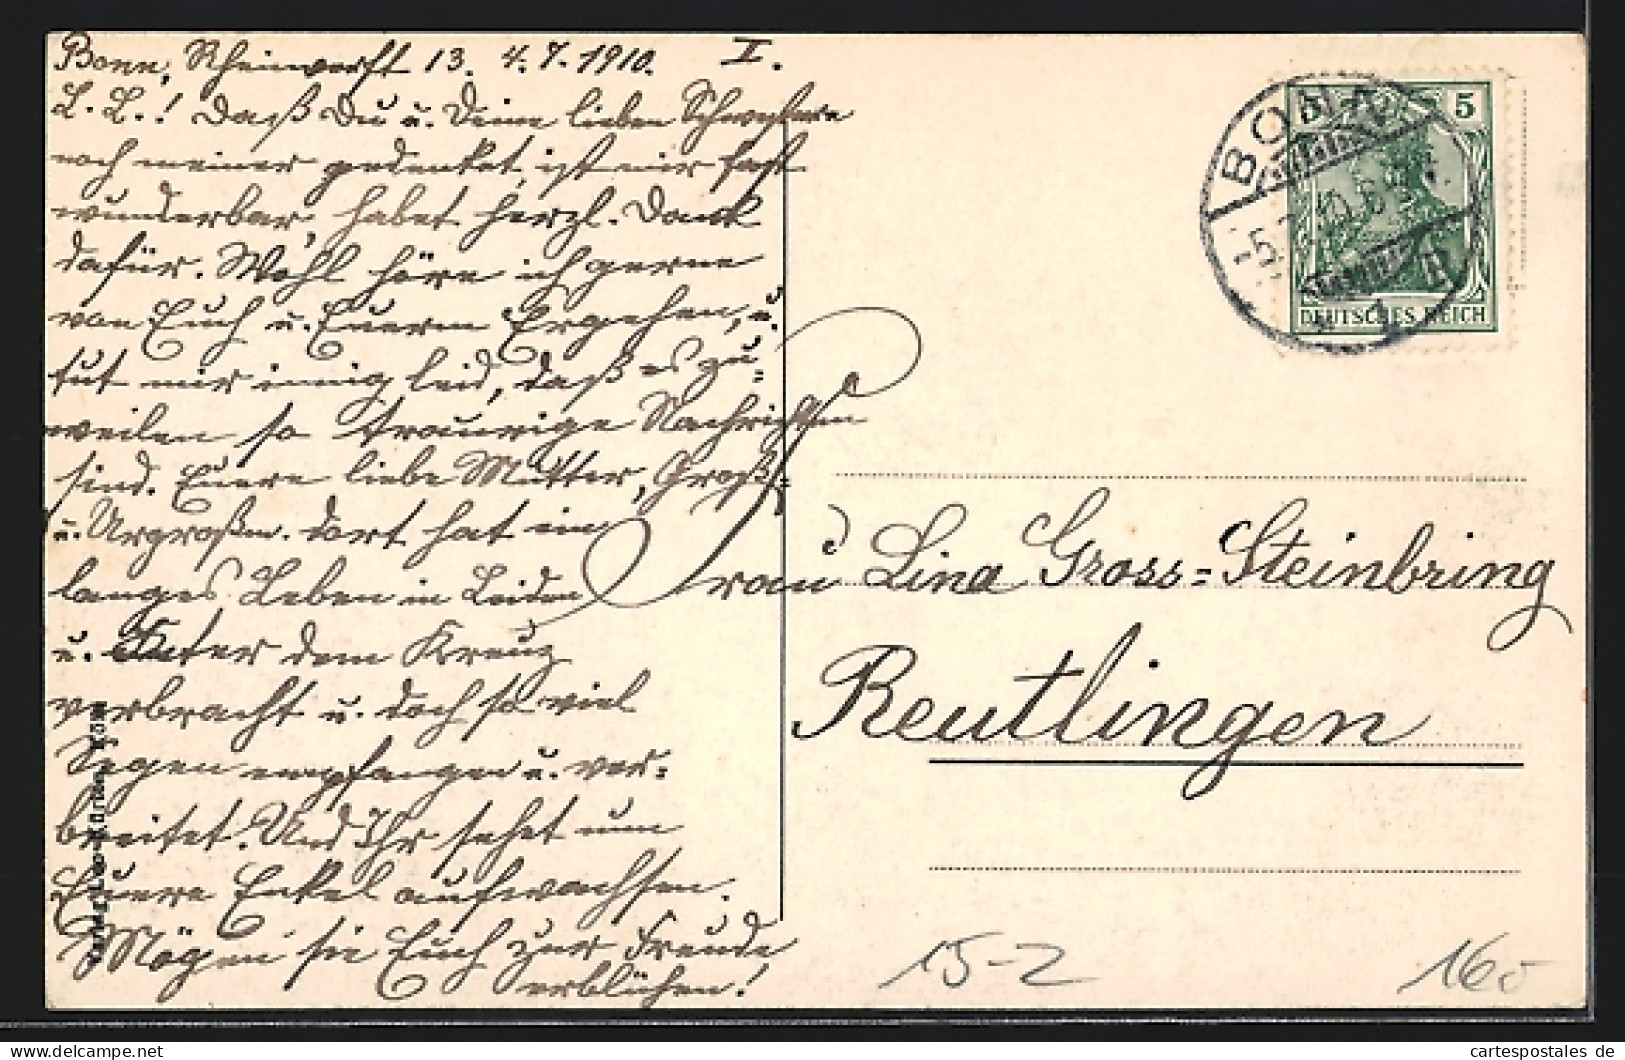 Bonn, Rheinwerft 13. 4.7.1910. II.
L. L.! Daß Du u. Deine lieben Schwestern
noch meiner gedenket, ist mir fast
wunderbar, habet herzl. Dank
dafür. Wohl höre ich gerne
von Euch u. Euerm Ergehen, u.
tut mir innig leid, daß es zu=
weilen so traurige Nachrichten
sind. Euere liebe Mutter, Groß=
u. Urgroßm. dort hat ein
langes Leben in Leiden
u. unter dem Kreuz
verbracht u. doch so viel
Segen empfangen u. ver=
breitet. Und Ihr sehet nun
Euere Enkel aufwachsen.
Mögen sie Euch zur Freude
erblühen!
BONN
5.7.10.6
1
5
DEUTSCHES REICH
Frau Lina Gross=Steinbring
Reutlingen
Verlag Leo Kürten, Köln
15-2
160
cartespostales de